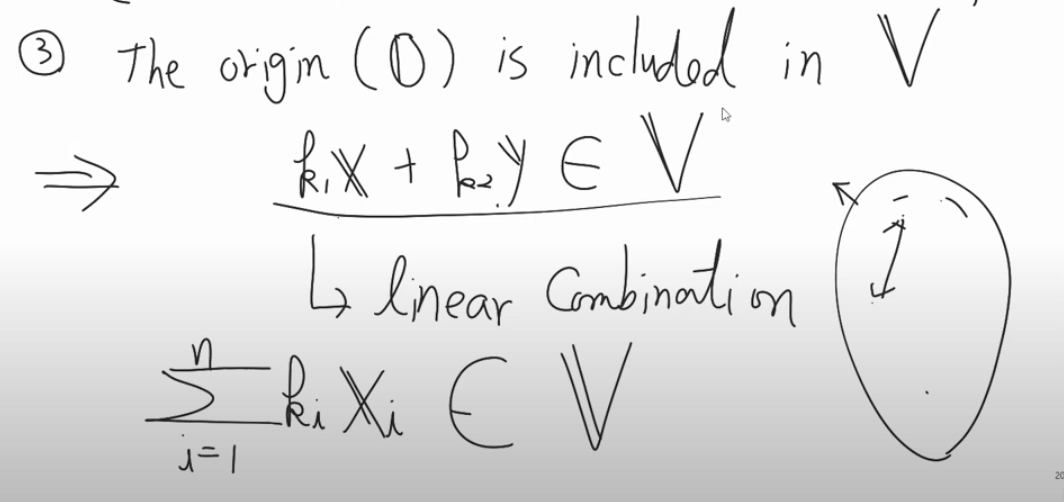 ③ The origin (𝕆) is included in 𝕍
⇒ k₁𝕏 + k₂𝕪 ∈ 𝕍
↳ linear Combination
n
∑ kᵢ 𝕏ᵢ ∈ 𝕍
i=1
20